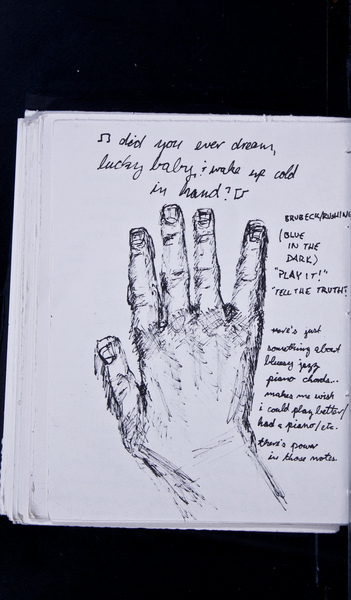 ♫ did you ever dream,
lucky baby, & wake up cold
in hand? ♫
BRUBECK/RUSHING
(BLUE
IN THE
DARK)
"PLAY IT!"
"TELL THE TRUTH!"
there's just
something about
bluesy jazz
piano chords...
makes me wish
i could play better/
had a piano/etc.
there's power
in those notes.